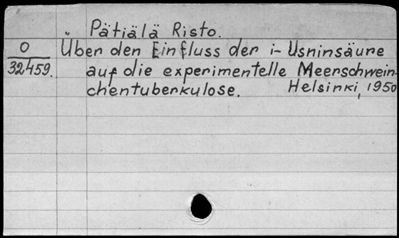 Pätiälä Risto.
O Über den Einfluss der i-Usninsäure
32459. auf die experimentelle Meerschwein-
chentuberkulose. Helsinki, 1950